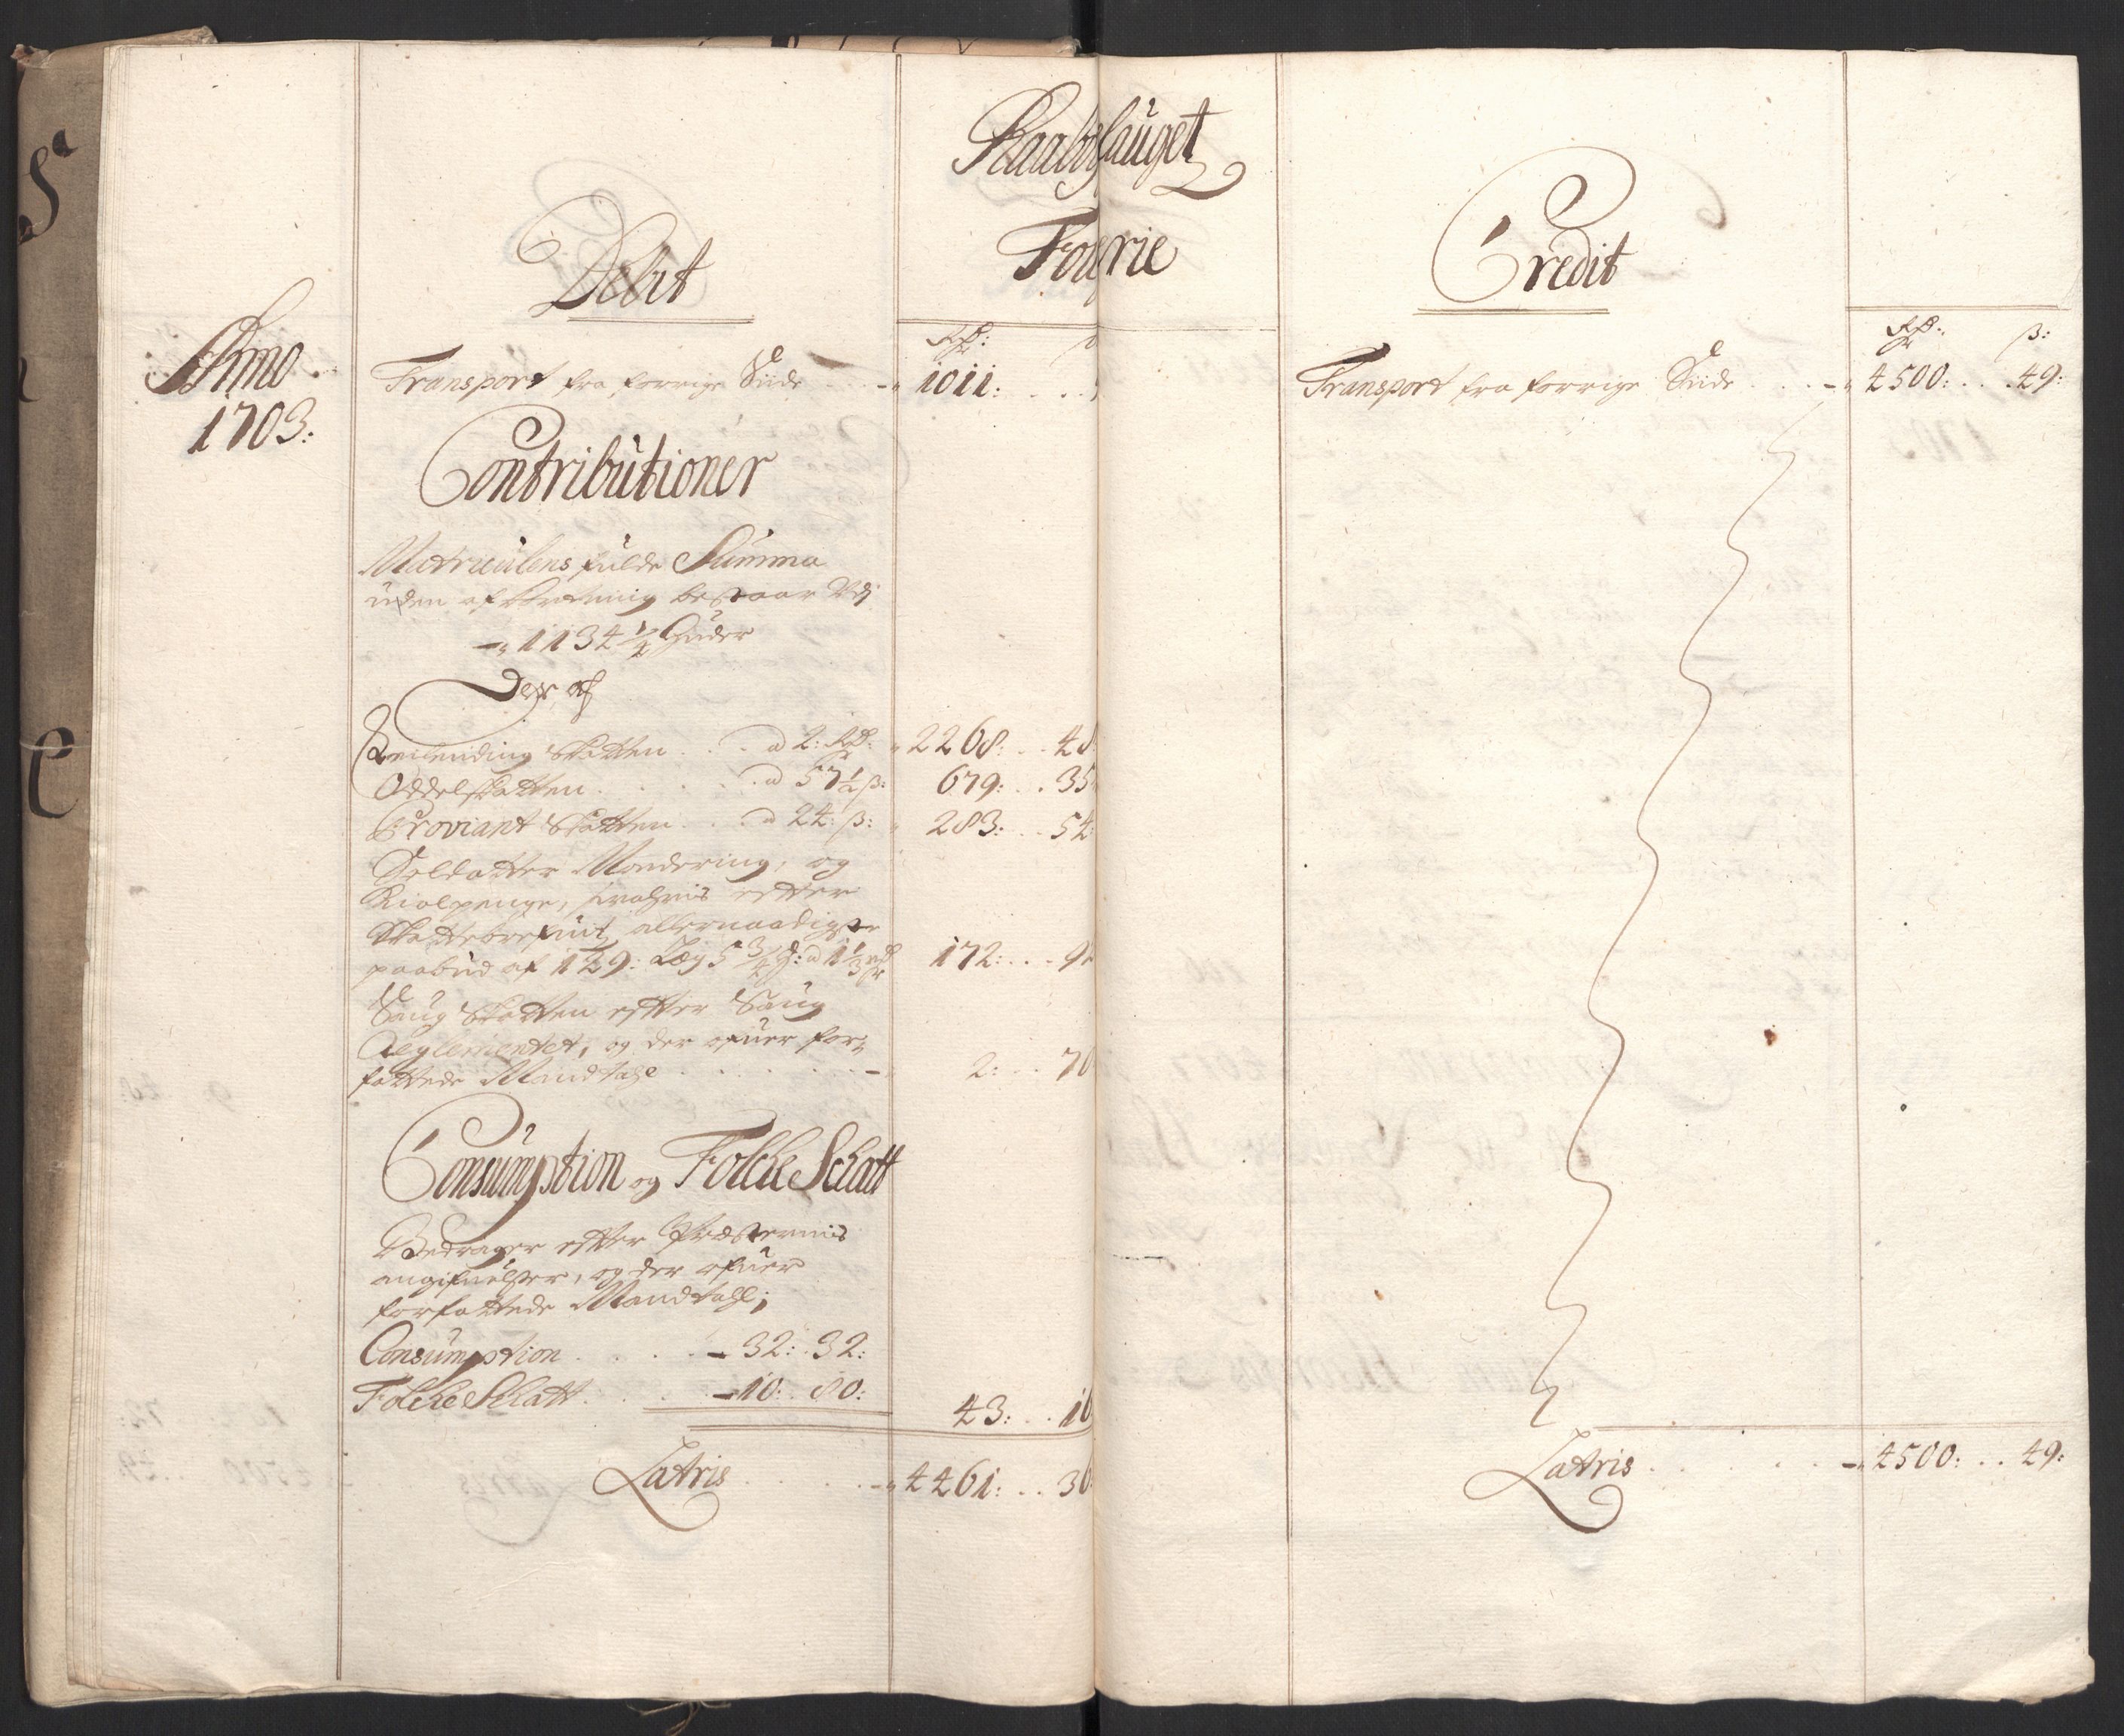 Raabyglauget
Foerie
Debit
Anno
1703:
Rd:
Transport fra forrige Siide 1011:
Contributioner
Matriculens fulde Summa
uden afkortning bestaar Udj
1134 1/4 Huder
Der af
Leilending Skatten a 2: Rd: 2268: 48
Oddelskatten a 57 1/2 ß: 679: 35
Proviant Skatten a 24: ß: 283: 54
Soldatter Mondering, og
Kiolpenge,
allernaadigste
paabud af 129: Læg 5 3/4 H: a 1 1/3 rd 172: 9
Saug Skatten efter Saug
Reglementet, og der ofuer for,
fattede Mandtahl 2: 70
Consumption og Folche Schatt
Bedrager efter Præsternis
angifuelser, og der ofuer
forfattede Mandtahl;
Consumption 32: 32:
Folche Schatt 10: 80: 43: 16
Latris 4461: 36
Credit
Rd: ß:
Transport fra forrige Siide 4500: 49:
Latris 4500: 49: